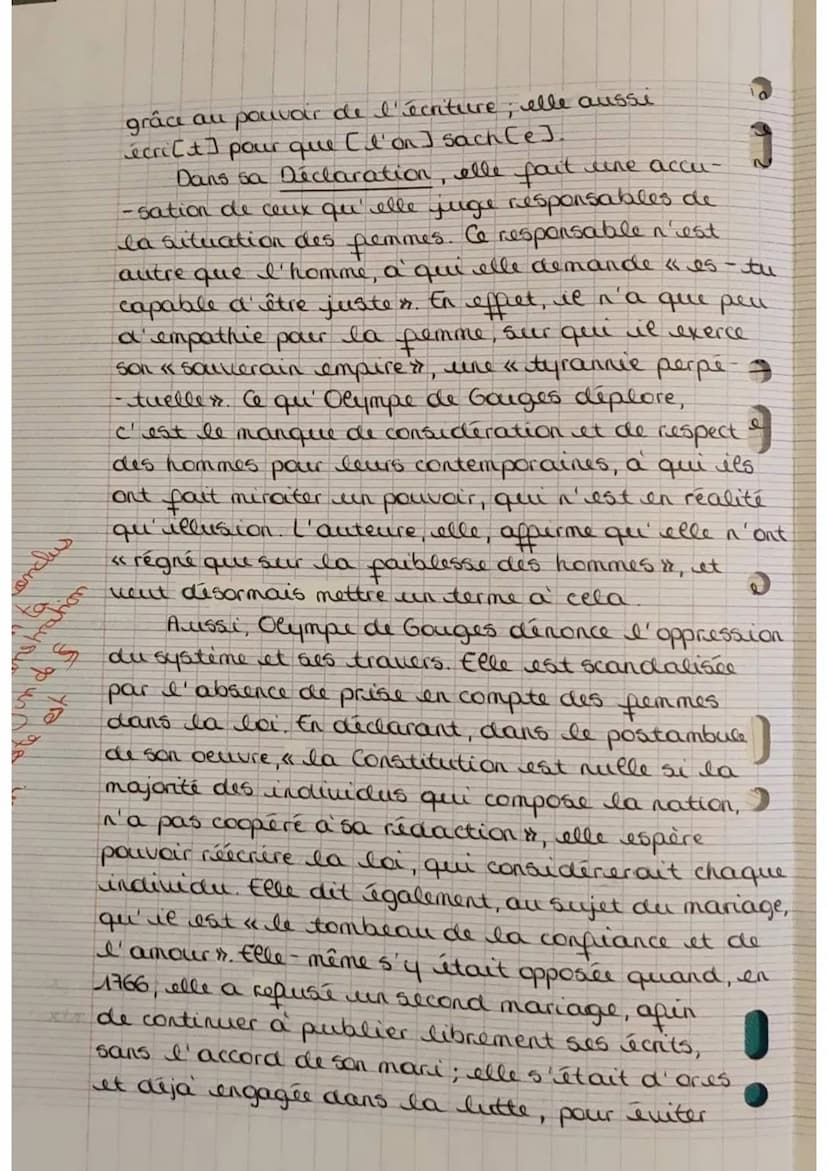 grâce au pouvoir de l'écriture ; elle aussi
écri[t] pour que [l'on] sach[e].
Dans sa Déclaration, elle fait une accu-
-sation de ceux qu'elle juge responsables de
la situation des femmes. Ce responsable n'est
autre que l'homme, à qui elle demande « es-tu
capable d'être juste ». En effet, il n'a que peu
d'empathie pour la femme, sur qui il exerce
son « souverain empire », une « tyrannie perpé-
-tuelle ». Ce qu'Olympe de Gouges déplore,
c'est le manque de considération et de respect
des hommes pour leurs contemporaines, à qui ils
ont fait miroiter un pouvoir, qui n'est en réalité
qu'illusion. L'auteure, elle, affirme qu'elle n'ont
« régné que sur la faiblesse des hommes », et
veut désormais mettre un terme à cela.
Aussi, Olympe de Gouges dénonce l'oppression
du système et ses travers. Elle est scandalisée
par l'absence de prise en compte des femmes
dans la loi. En déclarant, dans le postambule
de son oeuvre, « la Constitution est nulle si la
majorité des individus qui compose la nation,
n'a pas coopéré à sa rédaction », elle espère
pouvoir réécrire la loi, qui considérerait chaque
individu. Elle dit également, au sujet du mariage,
qu'il est « le tombeau de la confiance et de
l'amour ». Elle-même s'y était opposée quand, en
1766, elle a refusé un second mariage, afin
de continuer à publier librement ses écrits,
sans l'accord de son mari ; elle s'était d'ores
et déjà engagée dans la lutte, pour éviter